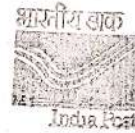 भारतीय डाक
India Post